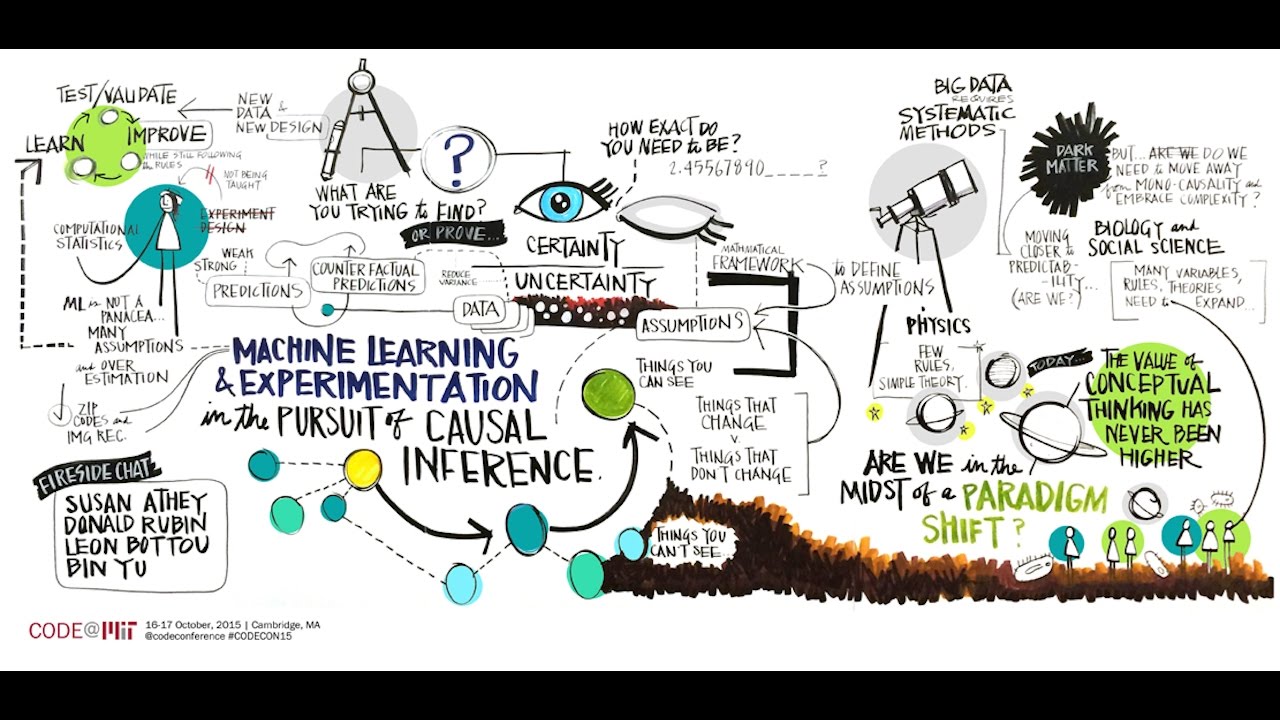 TEST/VALIDATE
LEARN
IMPROVE
WHILE STILL FOLLOWING
the RULES
NEW
DATA &
NEW DESIGN
NOT BEING
TAUGHT
EXPERIMENT
DESIGN
COMPUTATIONAL
STATISTICS
WEAK
STRONG
PREDICTIONS
COUNTER FACTUAL
PREDICTIONS
REDUCE
VARIANCE
DATA
ML is NOT A
PANACEA...
MANY
ASSUMPTIONS
and OVER
ESTIMATION
ZIP
CODES and
IMG REC.
?
WHAT ARE
YOU TRYING to FIND?
OR PROVE...
HOW EXACT DO
YOU NEED to BE?
2.45567890_____?
CERTAINTY
UNCERTAINTY
MATHMATICAL
FRAMEWORK
to DEFINE
ASSUMPTIONS
ASSUMPTIONS
THINGS YOU
CAN SEE
THINGS THAT
CHANGE
v.
THINGS THAT
DON'T CHANGE
THINGS YOU
CAN'T SEE...
MACHINE LEARNING
& EXPERIMENTATION
in the PURSUIT of CAUSAL
INFERENCE.
FIRESIDE CHAT
SUSAN ATHEY
DONALD RUBIN
LEON BOTTOU
BIN YU
BIG DATA
REQUIRES
SYSTEMATIC
METHODS
DARK
MATTER
BUT... ARE WE DO WE
NEED to MOVE AWAY
from MONO-CAUSALITY and
EMBRACE COMPLEXITY?
MOVING
CLOSER to
PREDICTAB-
ILITY...
(ARE WE?)
BIOLOGY and
SOCIAL SCIENCE
MANY VARIABLES,
RULES, THEORIES
NEED to EXPAND...
PHYSICS
FEW
RULES,
SIMPLE THEORY.
TODAY...
THE VALUE of
CONCEPTUAL
THINKING HAS
NEVER BEEN
HIGHER
ARE WE in the
MIDST of a PARADIGM
SHIFT?
CODE@MIT
16-17 October, 2015 | Cambridge, MA
@codeconference #CODECON15